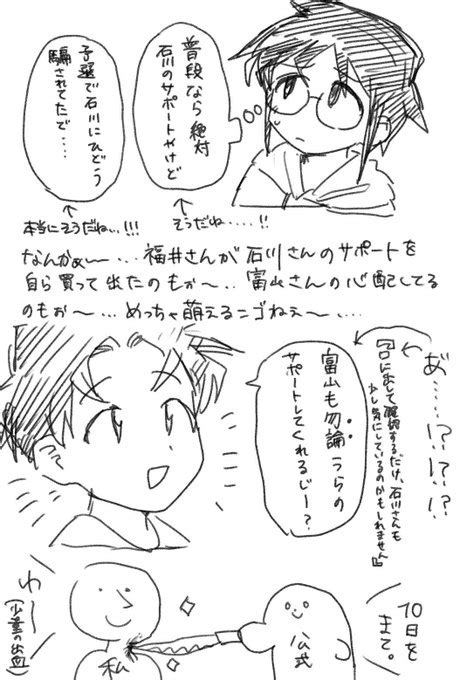 普段なら絶対
石川のサポートやけど
予選で石川にひどう
騙されてたで‥‥
そうだね‥‥!!
本当にそうだね‥!!!
なんかぁ〜‥‥福井さんが石川さんのサポートを
自ら買って出たのもぉ〜‥富山さんの心配してる
のもぉ〜‥めっちゃ萌えるニゴねぇ〜‥‥
あ‥‥!?!?!?
『口に出して確認するだけ、石川さんも
少し気にしているのかもしれません』
富山も勿論うらの
サポートしてくれるじー?
10日を
まて。
公式
私
わー
(少量の出血)